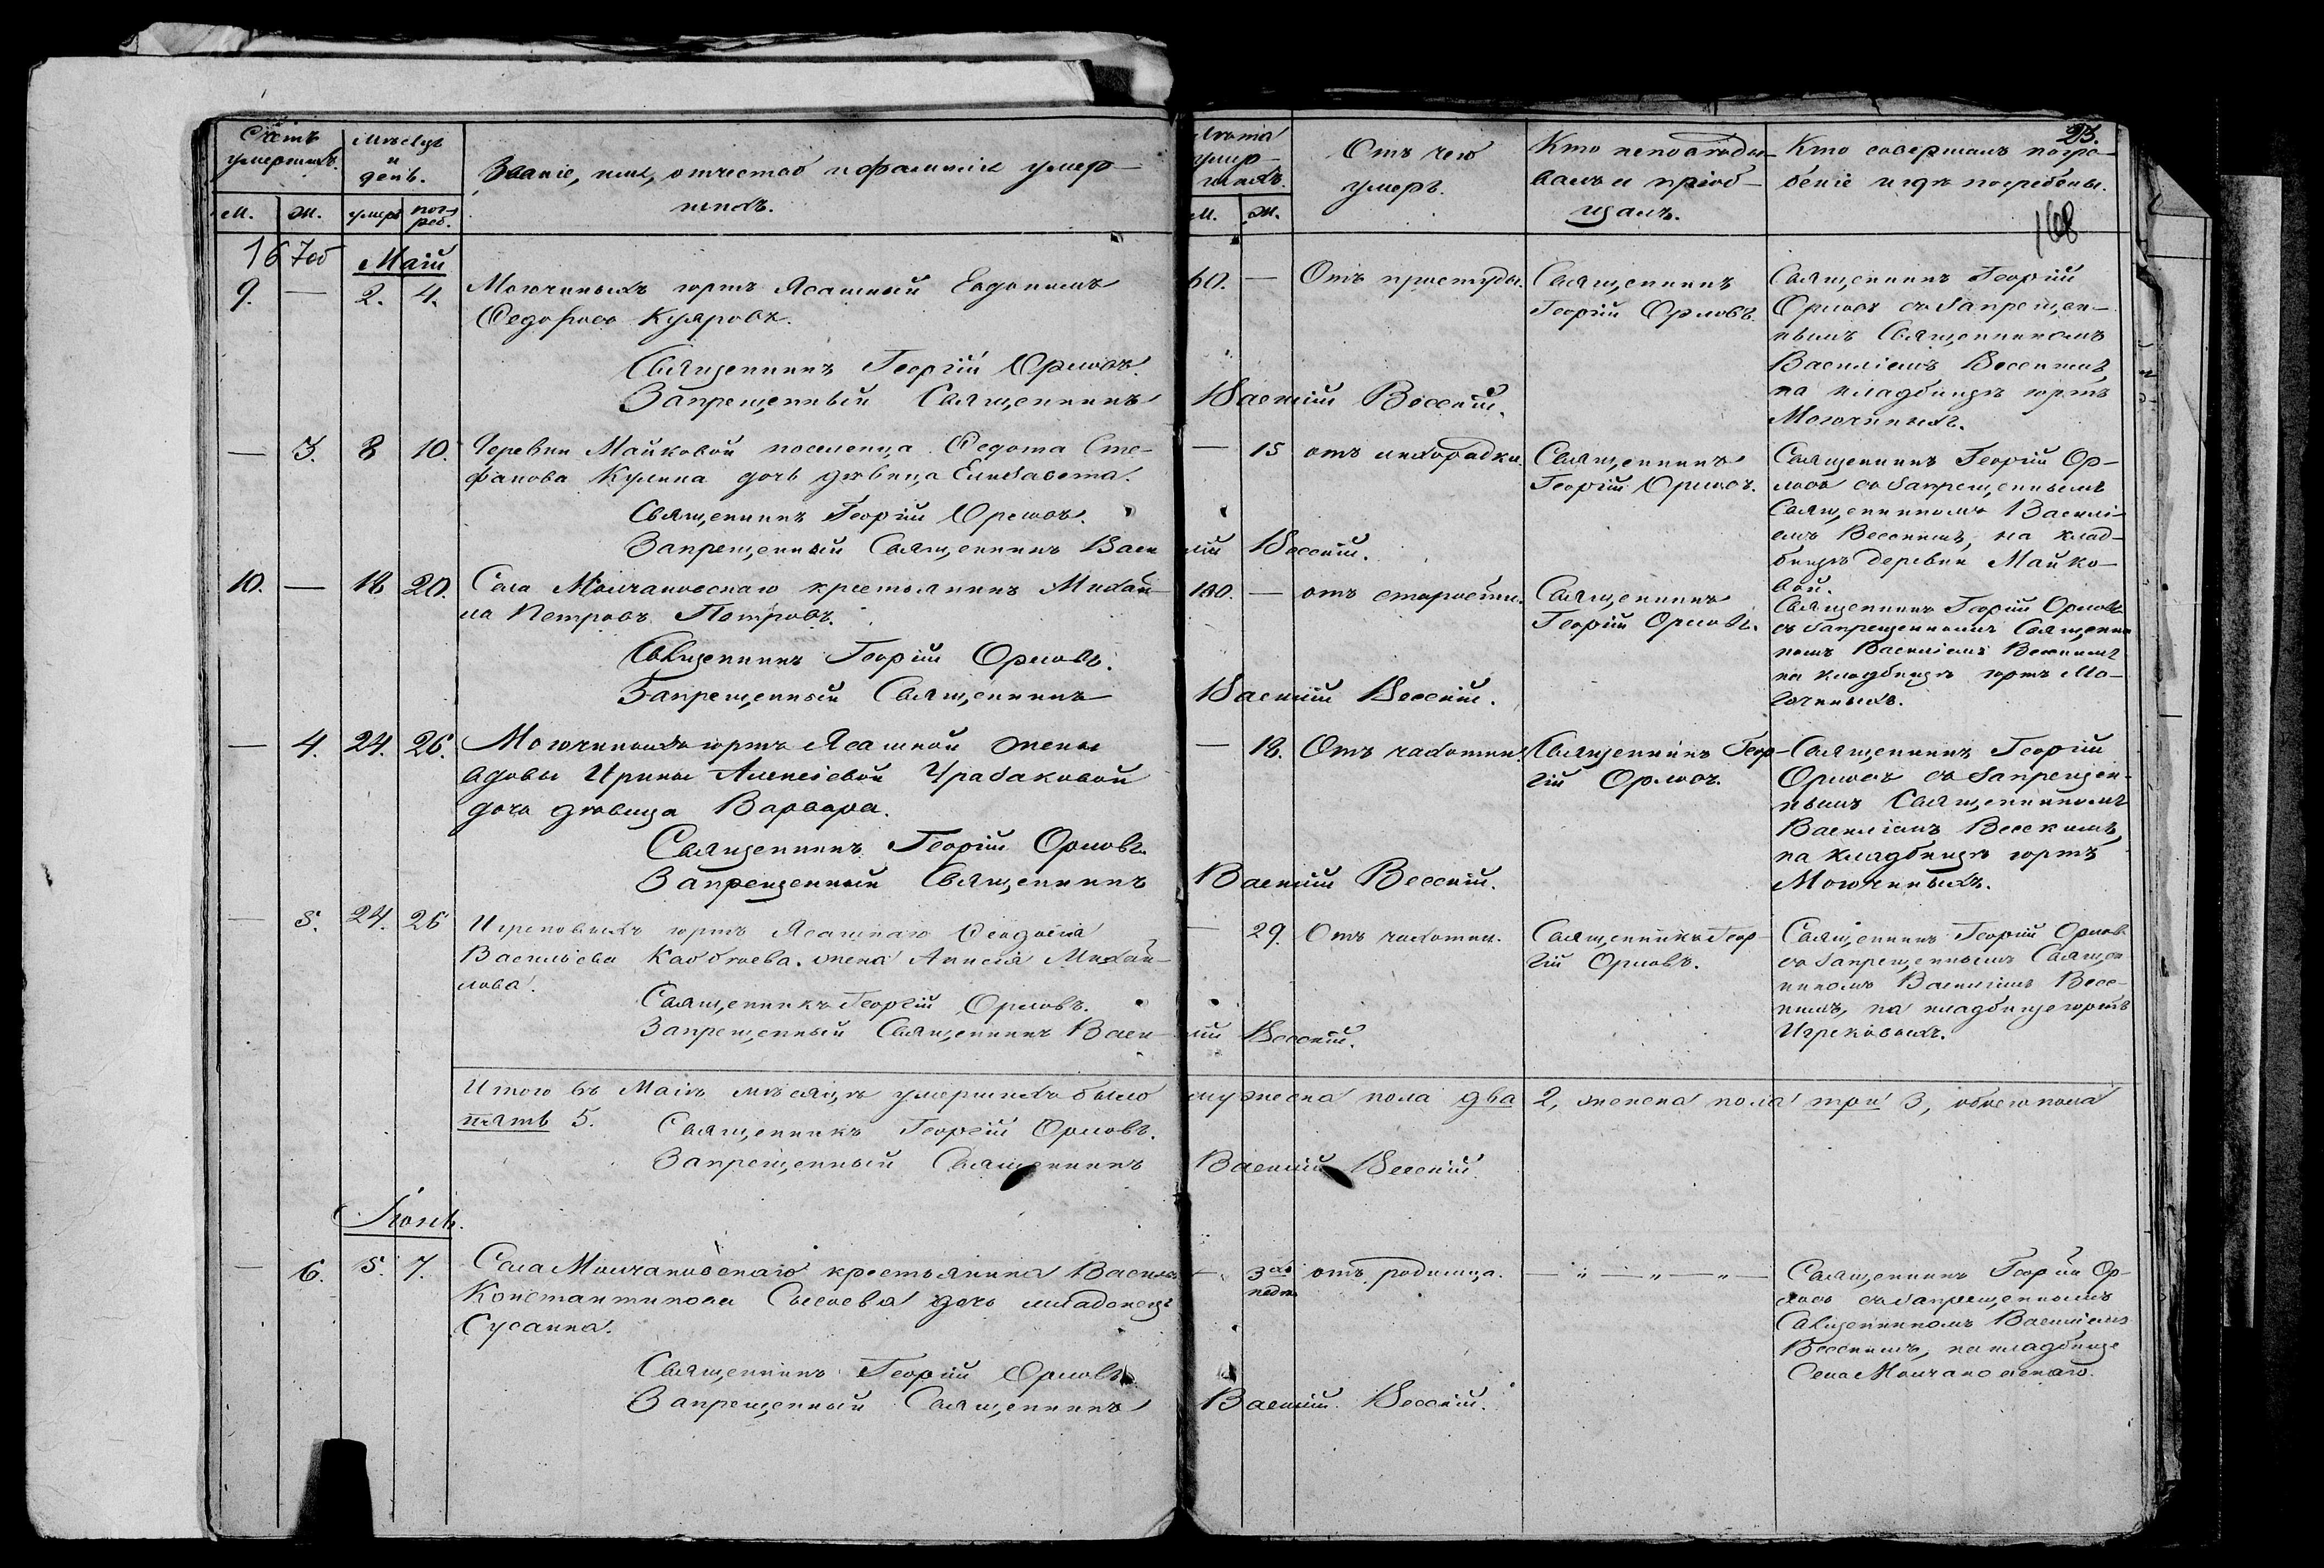 Счетъ умершихъ.
Мѣсяцъ и день.
Званіе, имя, отчество и фамилія умер-
шихъ.
М. Ж. умеръ погреб.
Лѣта умер-
шихъ.
М. Ж.
Отъ чего
умеръ.
Кто исповѣды-
валъ и пріоб-
щалъ.
Кто совершалъ погре-
беніе и гдѣ погребены.
23.
168
16 7об
Маій
9. — 2. 4.
Могочиныхъ юртъ Ясашный Евдокимъ
Ѳедоровъ Куяровъ.
Священникъ Георгій Орловъ.
Запрещенный Священникъ Василій Весскій.
60. — Отъ простуды.
Священникъ
Георгій Орловъ.
Священникъ Георгій
Орловъ съ запрещен-
нымъ Священникомъ
Василіемъ
на кладбищѣ юртъ
Могочиныхъ.
— 3. 8 10.
Деревни Майковой поселенца Ѳедота Сте-
фанова Кулина дочь дѣвица Елизавета.
Священникъ Георгій Орловъ.
Запрещенный Священникъ Василій Весскій.
— 15 отъ лихорадки.
Священникъ
Георгій Орловъ.
Священникъ Георгій Ор-
ловъ съ запрещеннымъ
Священникомъ Василі-
емъ на клад-
бищѣ деревни Майко-
вой.
10. — 18 20.
Села Молчановскаго крестьянинъ Михай-
ла Петровъ Петровъ.
Священникъ Георгій Орловъ.
Запрещенный Священникъ Василій Весскій.
100. — отъ старости.
Священникъ
Георгій Орловъ.
Священникъ Георгій Орловъ
съ запрещеннымъ Священни-
комъ Василіемъ
на кладбищѣ юртъ Мо-
гочиныхъ.
— 4. 24. 26.
Могочиныхъ юртъ Ясашной жены
вдовы Ирины Алексіевой
дочь дѣвица Варвара.
Священникъ Георгій Орловъ.
Запрещенный Священникъ Василій Весскій.
— 18. Отъ чахотки.
Священникъ Геор-
гій Орловъ.
Священникъ Георгій
Орловъ съ запрещен-
нымъ Священникомъ
Василіемъ
на кладбищѣ юртъ
Могочиныхъ.
— 5. 24. 26
Игрековыхъ юртъ Ясашнаго Ѳеодосія
Васильева жена Анисія Михай-
лова.
Священникъ Георгій Орловъ.
Запрещенный Священникъ Василій Весскій.
— 29. Отъ чахотки.
Священникъ Геор-
гій Орловъ.
Священникъ Георгій Орловъ
съ запрещеннымъ Священ-
никомъ Василіемъ Весс-
кимъ, на кладбище юртъ
Игрековыхъ.
Итого въ Маіѣ мѣсяцѣ умершихъ было мужеска пола два 2, женска пола три 3, обоего пола
пять 5.
Священникъ Георгій Орловъ.
Запрещенный Священникъ Василій Весскій.
Іюнь.
— 6. 5. 7.
Села Молчановскаго крестьянина Василія
Константинова Сысоева дочь младенецъ
Сусанна.
Священникъ Георгій Орловъ.
Запрещенный Священникъ Василій Весскій.
— 3хъ недѣ. отъ родимца.
— " — " — " —
Священникъ Георгій Ор-
ловъ съ запрещеннымъ
Священникомъ Василіемъ
Весскимъ, на кладбище
Села Молчановскаго.